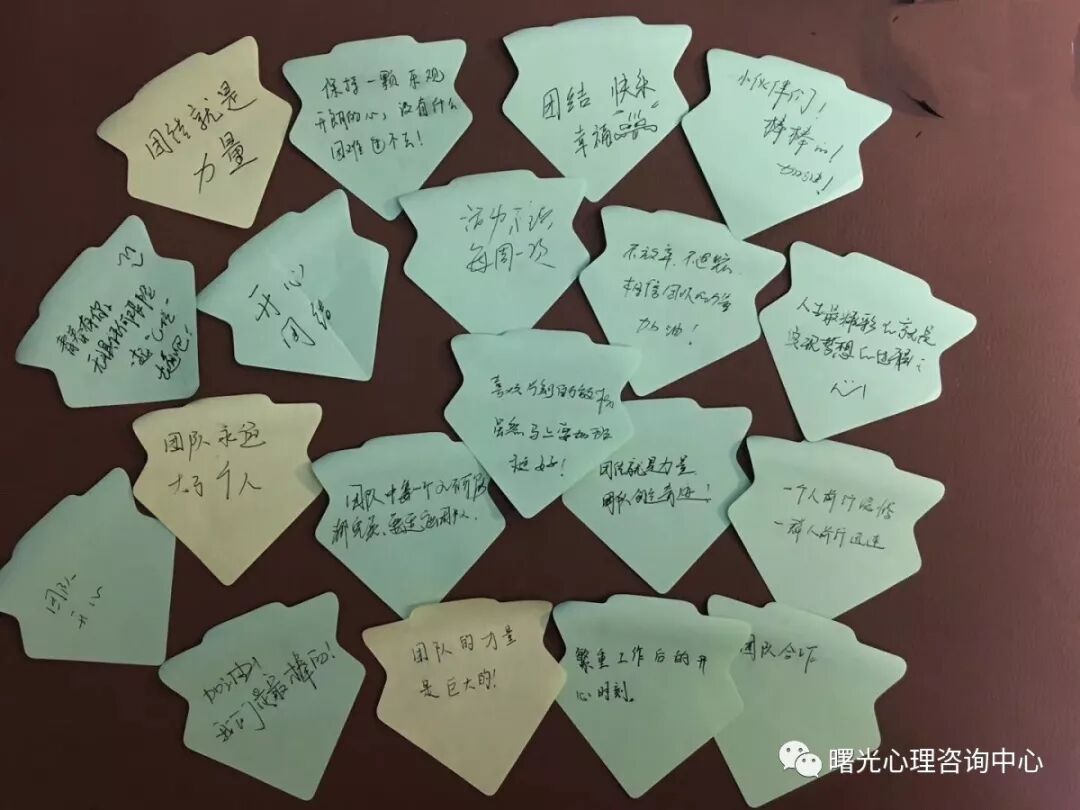 团结就是
力量
保持一颗乐观
开朗的心，没有什么
困难过不去！
团结 快乐
幸福
小伙伴们！
棒棒的！
加油！
青春有你
一起吧！
开心
团结
活力不错
每周一次
不放弃、不退宿、
相信团队的力量
加油！
人生最精彩的就是
实现梦想的过程；
虽然马上要加班
挺好！
团队永远
大于个人
团队中每一个人
都完美、
团结就是力量
团队创造奇迹！
一个人前行
一群人前行迅速
团队
开心
加油！
我们是最棒的！
团队的力量
是巨大的！
繁重工作后的开
心时刻。
团队合作
曙光心理咨询中心